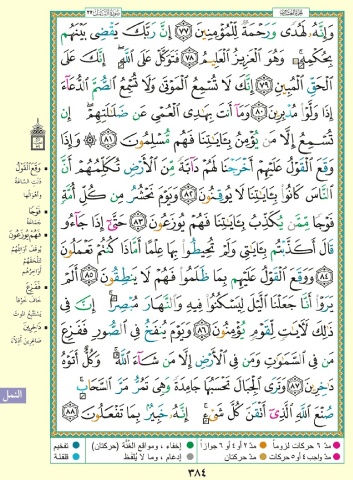 الجزء العشرون
سورة النمل ٢٧
وَإِنَّهُۥ لَهُدًى وَرَحْمَةٌ لِّلْمُؤْمِنِينَ ٧٧ إِنَّ رَبَّكَ يَقْضِى بَيْنَهُم
بِحُكْمِهِۦ ۚ وَهُوَ ٱلْعَزِيزُ ٱلْعَلِيمُ ٧٨ فَتَوَكَّلْ عَلَى ٱللَّهِ ۖ إِنَّكَ عَلَى
ٱلْحَقِّ ٱلْمُبِينِ ٧٩ إِنَّكَ لَا تُسْمِعُ ٱلْمَوْتَىٰ وَلَا تُسْمِعُ ٱلصُّمَّ ٱلدُّعَآءَ
إِذَا وَلَّوْا۟ مُدْبِرِينَ ٨٠ وَمَآ أَنتَ بِهَٰدِى ٱلْعُمْىِ عَن ضَلَٰلَتِهِمْ ۖ إِن
تُسْمِعُ إِلَّا مَن يُؤْمِنُ بِـَٔايَٰتِنَا فَهُم مُّسْلِمُونَ ٨١ ۞ وَإِذَا
وَقَعَ ٱلْقَوْلُ عَلَيْهِمْ أَخْرَجْنَا لَهُمْ دَآبَّةً مِّنَ ٱلْأَرْضِ تُكَلِّمُهُمْ أَنَّ
ٱلنَّاسَ كَانُوا۟ بِـَٔايَٰتِنَا لَا يُوقِنُونَ ٨٢ وَيَوْمَ نَحْشُرُ مِن كُلِّ أُمَّةٍ
فَوْجًا مِّمَّن يُكَذِّبُ بِـَٔايَٰتِنَا فَهُمْ يُوزَعُونَ ٨٣ حَتَّىٰٓ إِذَا جَآءُو
قَالَ أَكَذَّبْتُم بِـَٔايَٰتِى وَلَمْ تُحِيطُوا۟ بِهَا عِلْمًا أَمَّاذَا كُنتُمْ تَعْمَلُونَ
٨٤ وَوَقَعَ ٱلْقَوْلُ عَلَيْهِم بِمَا ظَلَمُوا۟ فَهُمْ لَا يَنطِقُونَ ٨٥ أَلَمْ
يَرَوْا۟ أَنَّا جَعَلْنَا ٱلَّيْلَ لِيَسْكُنُوا۟ فِيهِ وَٱلنَّهَارَ مُبْصِرًا ۚ إِنَّ فِى
ذَٰلِكَ لَـَٔايَٰتٍ لِّقَوْمٍ يُؤْمِنُونَ ٨٦ وَيَوْمَ يُنفَخُ فِى ٱلصُّورِ فَفَزِعَ
مَن فِى ٱلسَّمَٰوَٰتِ وَمَن فِى ٱلْأَرْضِ إِلَّا مَن شَآءَ ٱللَّهُ ۚ وَكُلٌّ أَتَوْهُ
دَٰخِرِينَ ٨٧ وَتَرَى ٱلْجِبَالَ تَحْسَبُهَا جَامِدَةً وَهِىَ تَمُرُّ مَرَّ ٱلسَّحَابِ ۚ
صُنْعَ ٱللَّهِ ٱلَّذِىٓ أَتْقَنَ كُلَّ شَىْءٍ ۚ إِنَّهُۥ خَبِيرٌۢ بِمَا تَفْعَلُونَ ٨٨
وَقَعَ القَوْلُ
دَنَت السَّاعَةُ
وأهْوالُها
فَوْجًا
جَمَاعَةً
فَهُمْ يُوزَعُونَ
يُوقَفُ أوائِلُهُمْ
لِتَلْحَقَهُمْ
أواخِرُهُمْ
فَفَزِعَ
خافَ خَوْفًا
يَسْتَتْبِعُ المَوْتَ
دَاخِرِينَ
صاغِرِينَ أذِلَّاءَ
النمل
مدّ ٦ حركات لزوماً
مدّ ٢ أو ٤ أو ٦ جوازاً
إخفاء، ومواقع الغُنَّة (حركتان)
تفخيم
مدّ واجب ٤ أو ٥ حركات
مدّ حركتان
إدغام، وما لا يُلفظ
قلقلة
٣٨٤